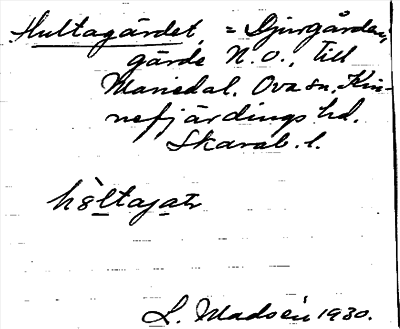 Hultagärdet, = Djurgården,
gärde N. O., till
Mariedal. Ova sn, Kin-
nefjärdings hd.
Skarab. l.
L. Madsén 1930.